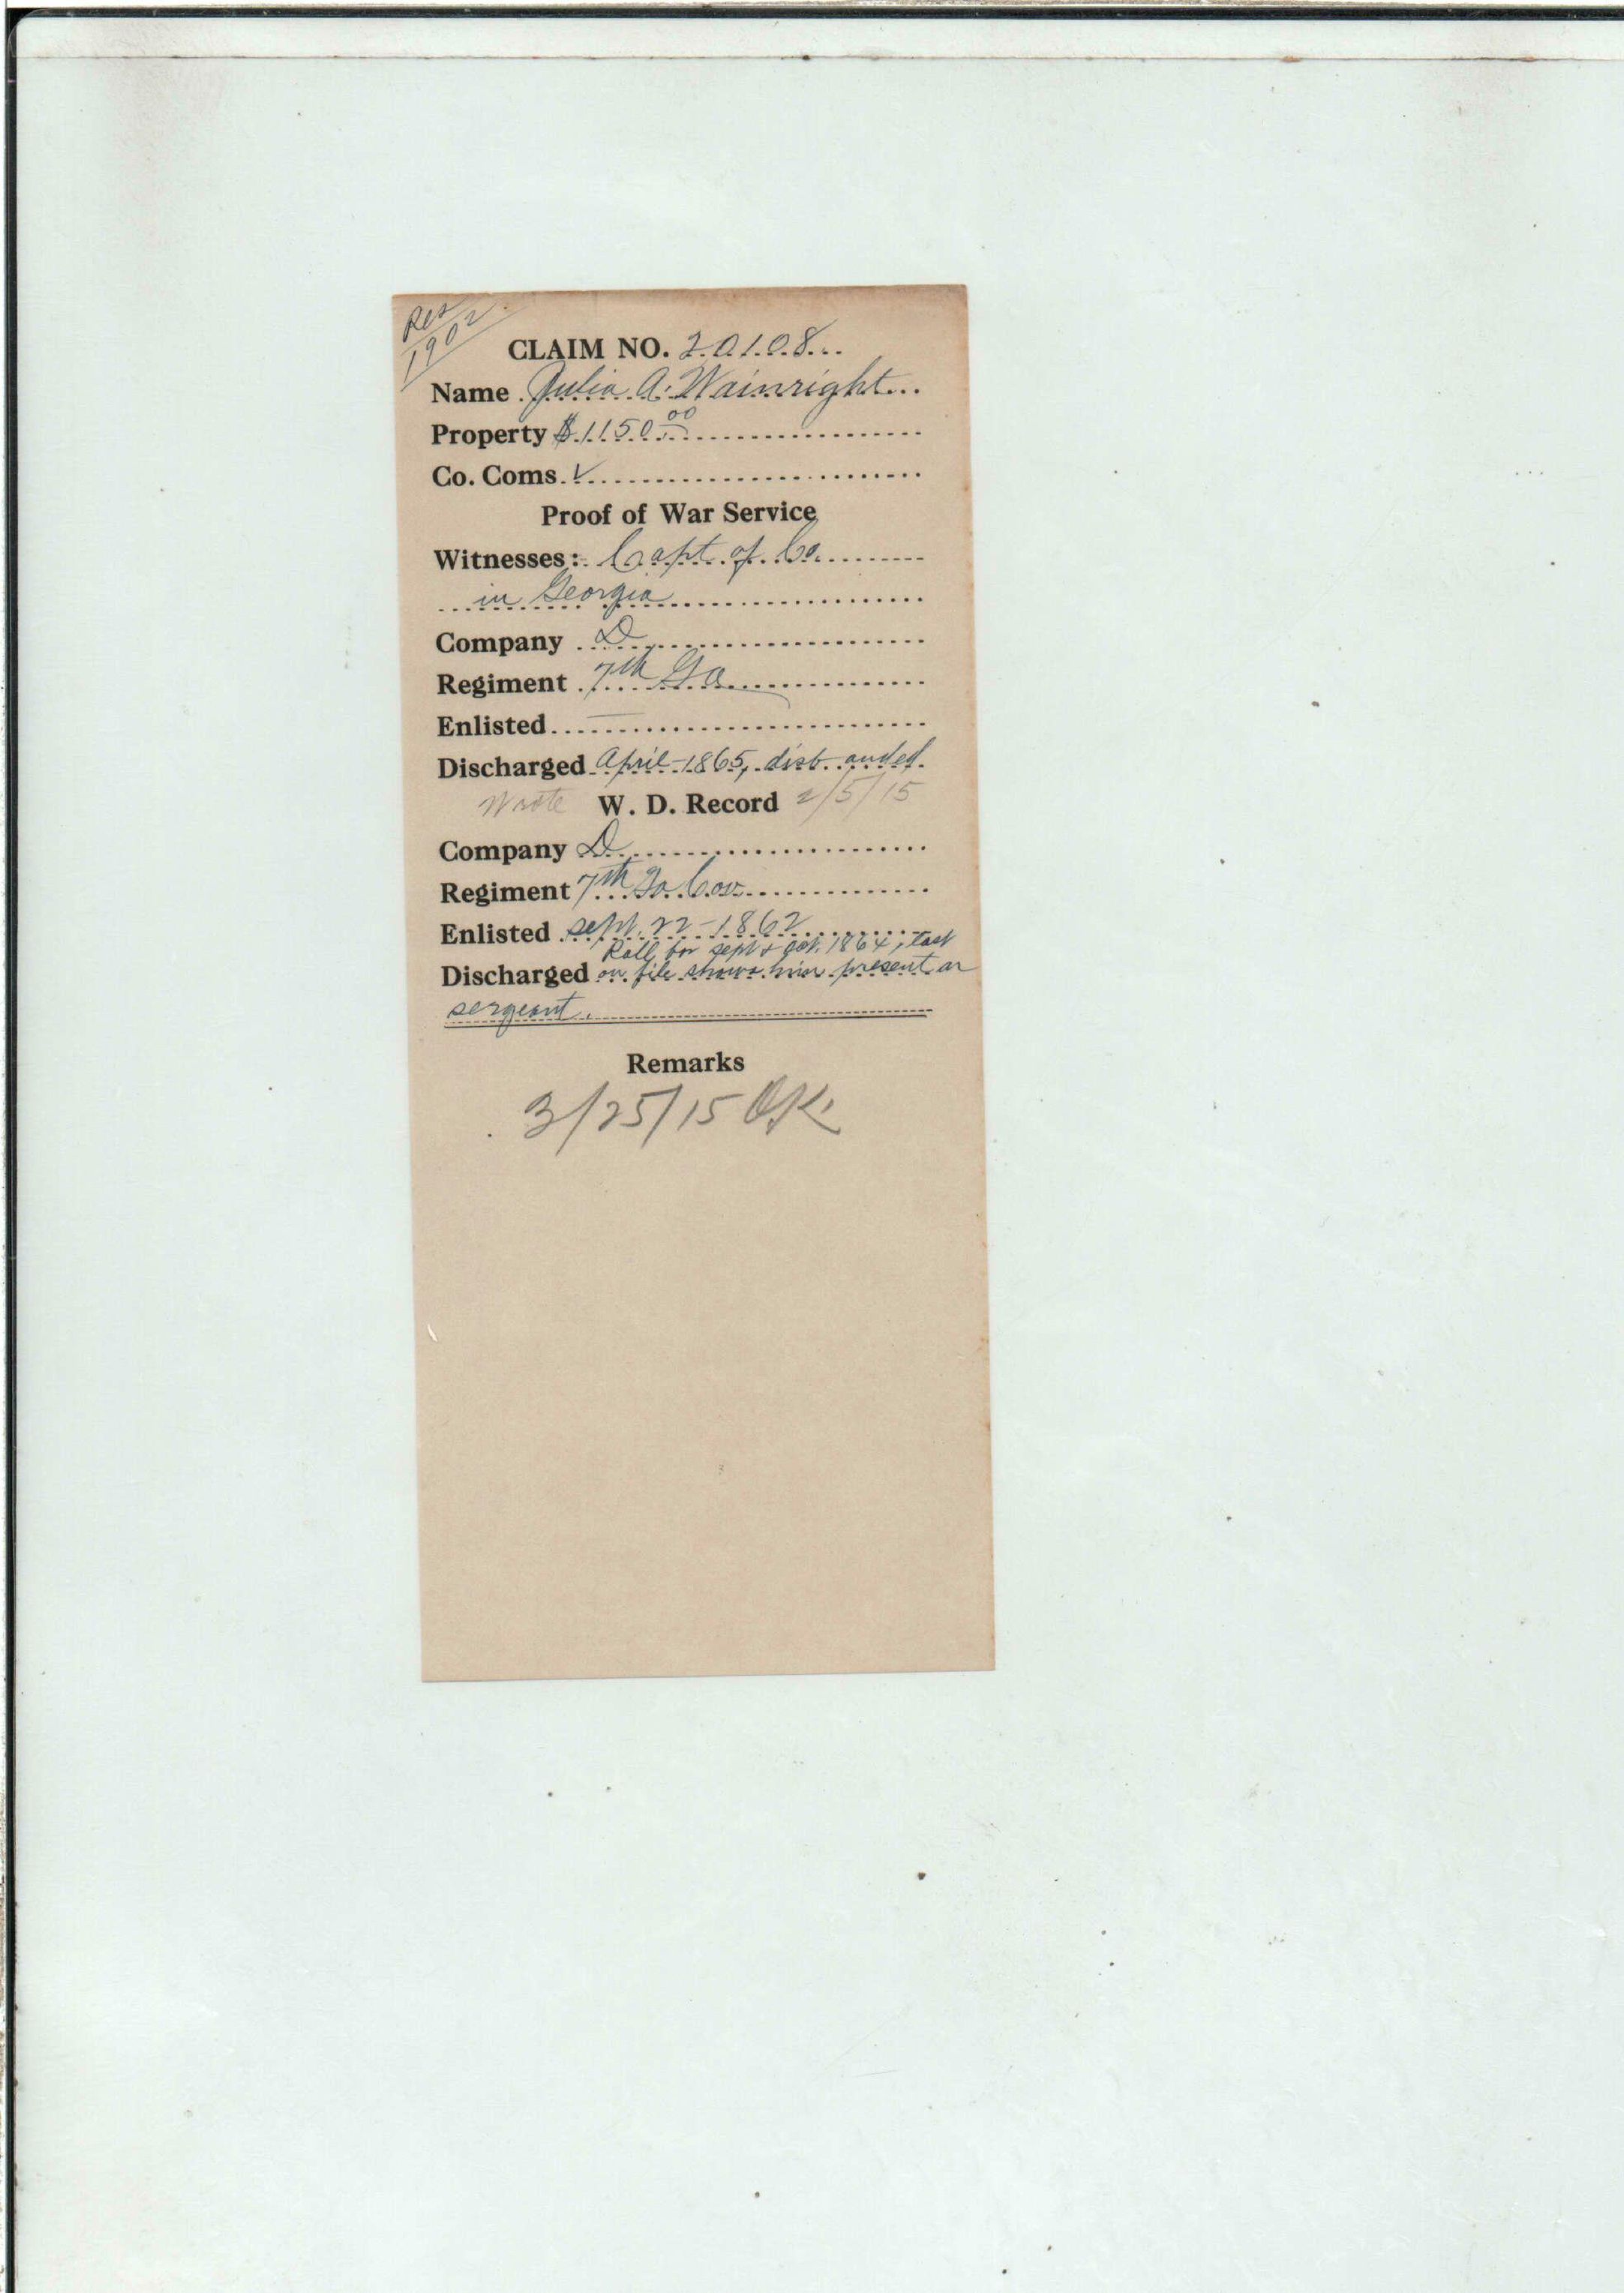 Res
1902
CLAIM NO. 20108
Name Julia A. Wainright
Property $1150.00
Co. Coms. ✓
Proof of War Service
Witnesses: Capt. of Co.
in Georgia
Company D
Regiment 7th Ga
Enlisted —
Discharged April-1865, disbanded.
Wrote W. D. Record 2/5/15
Company D
Regiment 7th Ga Cav.
Enlisted Sept. 22-1862
Roll for Sept & Oct. 1864, last
Discharged on file shows him present as
sergeant.
Remarks
3/25/15 OK.